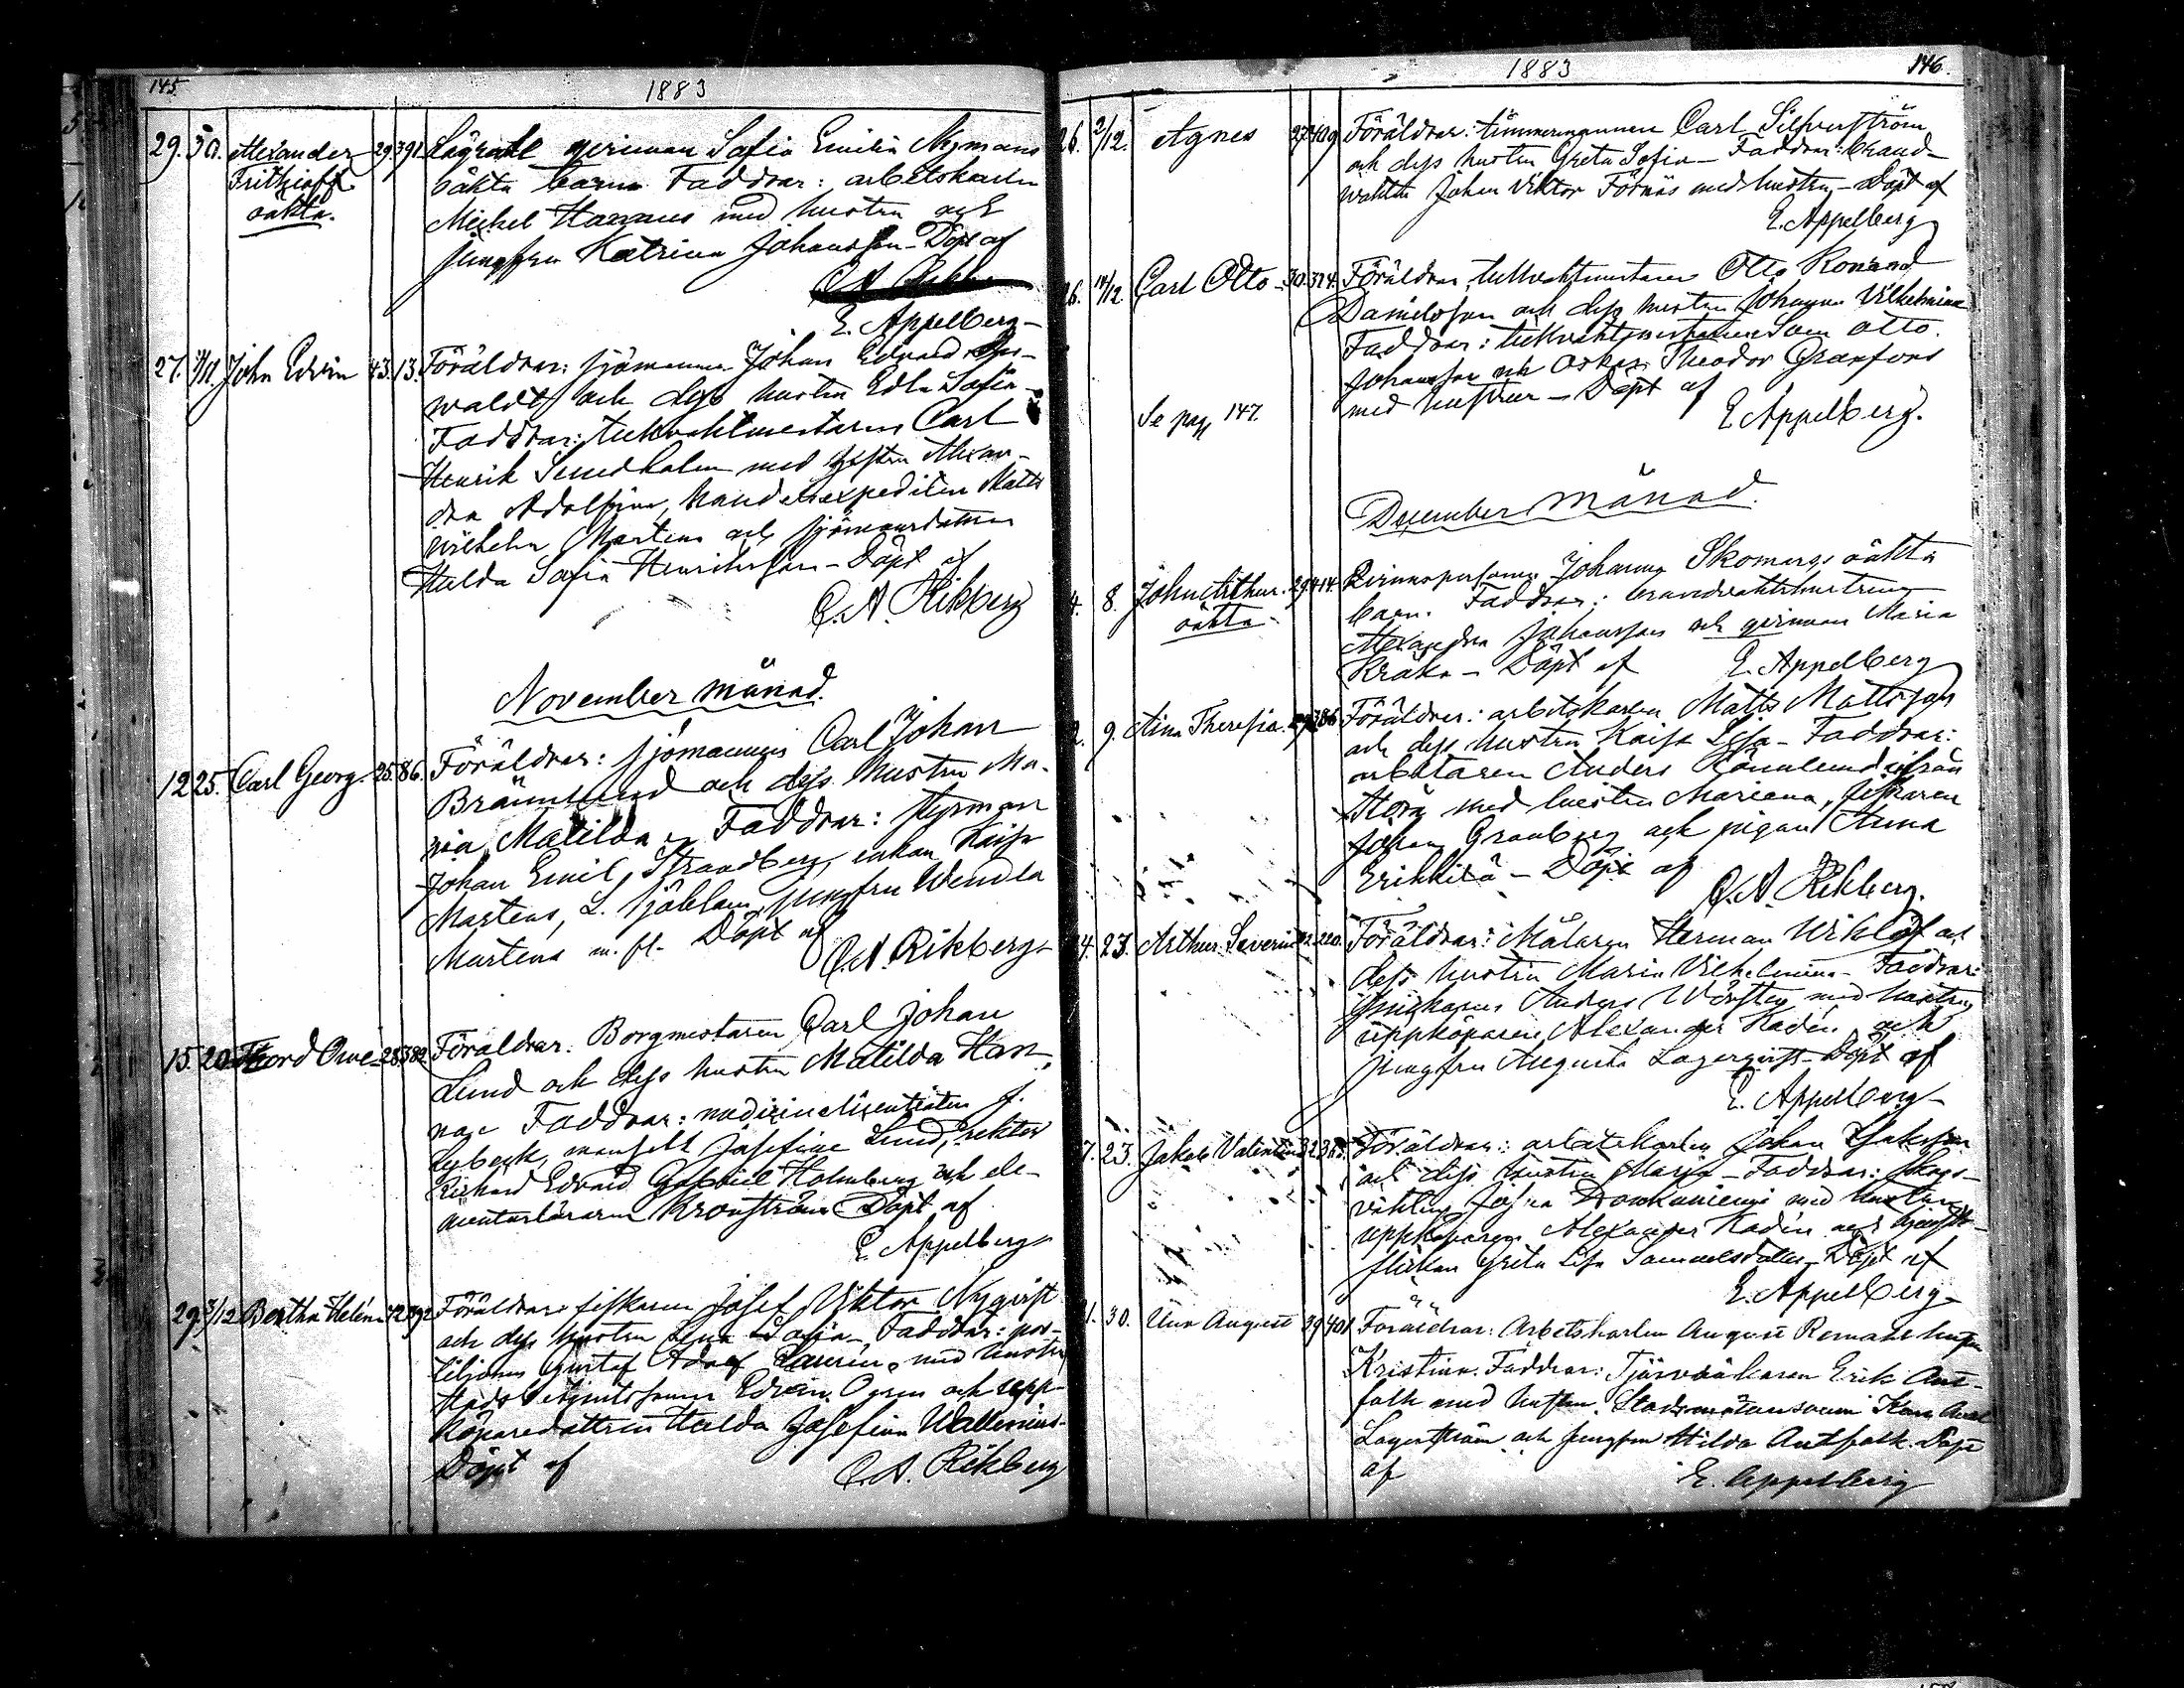 145.
1883
29. 30. Alexander 29. 391.
Frithiof
oäkta.
qvinnan Sofia Emilia Nymans
oäkta barn. Faddrar: arbetskarlen
Mickel Hannus med hustru och
jungfru Katrina Johansson - Döpt af
E. Appelberg
27. /11. John Edvin 43. 13. Föräldrar: sjömannen Johan Edvard
waldt och dess hustru Edla Sofia
Faddrar: tullvaktmästaren Carl
Henrik Smedholm med hustru Alexan-
dra Adolfina, handelsexpediten Matts
Wilhelm Martens och sjömansdottren
Hulda Sofia Henriksson - Döpt af
C. A. Rikberg
November månad.
12 25. Carl Georg. 25. 86. Föräldrar: sjömannen Carl Johan
Brännlund och dess hustru Ma-
ria Matilda. Faddrar: styrman
Johan Emil Strandberg, enkan Kaisa
Martens, L. Sjöblom, jungfru Wendla
Martens m. fl. Döpt af
C. A. Rikberg
15. 20. Thord Owe 28. 382. Föräldrar: Borgmestaren Carl Johan
Lund och dess hustru Matilda Han-
na. Faddrar: medicinelicentiaten J.
Lybeck, mansell Josefine Lund, rektor
Rickard Edvard Gabriel Holmberg och ele-
mentarläraren Kronström Döpt af
E. Appelberg
29. 3/12 Bertha Helèna 42. 392 Föräldrar: fiskaren Josef Viktor Nyqvist
och dess hustru Lena Sofia - Faddrar: pos-
tiljonen Gustaf Adolf Laurén med hustru
Edvin Ogren och upp-
köparedottren Hulda Josefina Wallenius.
Döpt af
C. A. Rikberg
1883
146.
26. 2/12. Agnes 27. 409. Föräldrar: timmermannen Carl Silfverström
och dess hustru Greta Sofia - Faddrar: brand-
vakten Johan Viktor Förnäs med hustru - Döpt af
E. Appelberg
26. /12. Carl Otto 30. 374. Föräldrar: tullvaktmästaren Otto Konrad
Danielsson och dess hustru Johanna Vilhelmina
Faddrar: tullvaktmästaren Sven Otto
Johansson och Oskar Theodor Granfors
med hustrur - Döpt af
E. Appelberg.
Se pag 147.
December månad.
4. 8. John Arthur. 29. 414. Qvinnspersonen Johanna Skomars oäkta
oäkta
barn. Faddrar: brandvaktshustrun
Alexandra Johansson och qvinnan Maria
Kråka - Döpt af E. Appelberg
2. 9. Aina Theresia. 386 Föräldrar: arbetskarlen Matts Mattsson
och dess hustru Kaisa Lisa - Faddrar:
arbetaren Anders Rönnlund ifrån
Storå med hustru Mariana, fiskaren
Johan Granberg och pigan Anna
Erikkilä - Döpt af
C. A. Rikberg.
4. 23. Arthur Severin 220. Föräldrar: Målaren Herman Wiklöf och
dess hustru Maria Vilhelmina - Faddrar:
Anders Wörsten med hustru,
uppköparen Alexander Kadén och
jungfru Augusta Lagerqvist - Döpt af
E. Appelberg
7. 23. Jakob Valentin 32 Föräldrar: arbetskarlen Johan
och dess hustru Maria - Faddrar: skogs-
med hustru,
uppköparen Alexander Kadén och
flickan Greta Lisa Samuelsdotter - Döpt af
E. Appelberg
1. 30. Uno August 39 401 Föräldrar: Arbetskarlen August
Kristina. Faddrar: Tjärvräkaren Erik Ant-
falk med hustru.
Lagerström och Jungfrun Hilda Antfalk. Döpt
af
E. Appelberg